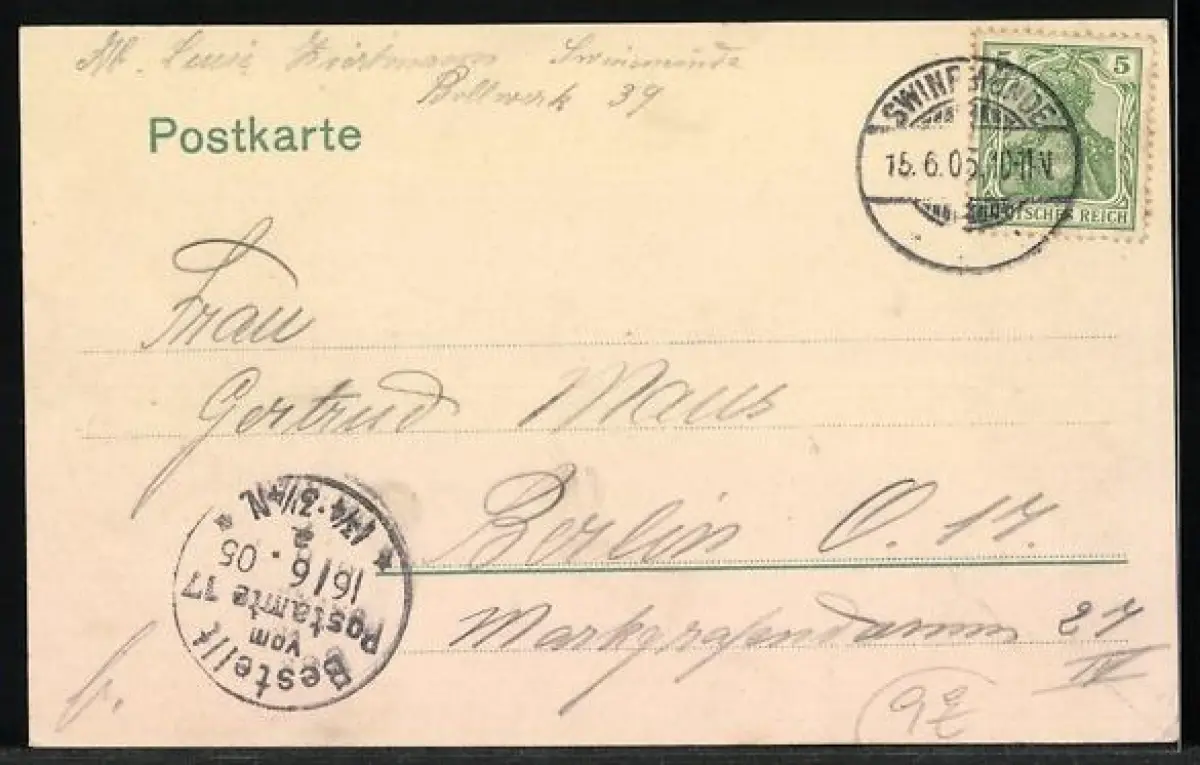 Swinemünde
Bollwerk 39
Postkarte
5 5
DEUTSCHES REICH
SWINEMÜNDE
15.6.05. 10-11V.
Frau
Gertrud Maus
Berlin O. 17.
Markgrafendamm 27
IV
Bestellt
vom
Postamte 17
16/6.05